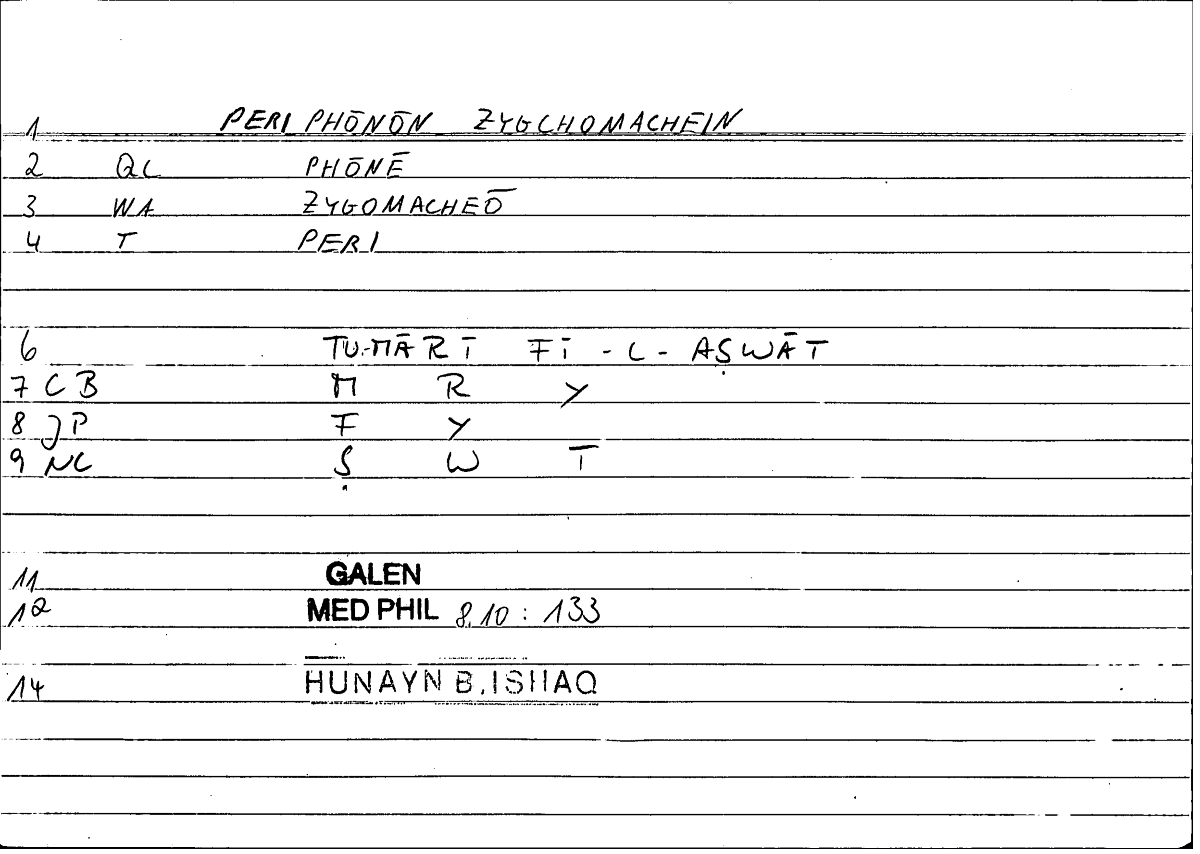 1 PERI PHŌNŌN ZYGCHOMACHEIN
2 QL PHŌNĒ
3 WA ZYGOMACHEŌ
4 T PERI
6 TU-MĀRĪ FĪ - L - AṢWĀT
7 CB M R Y
8 JP F Y
9 NC Ṣ W T
11 GALEN
12 MED PHIL 8.10 : 133
14 HUNAYN B. ISHAQ